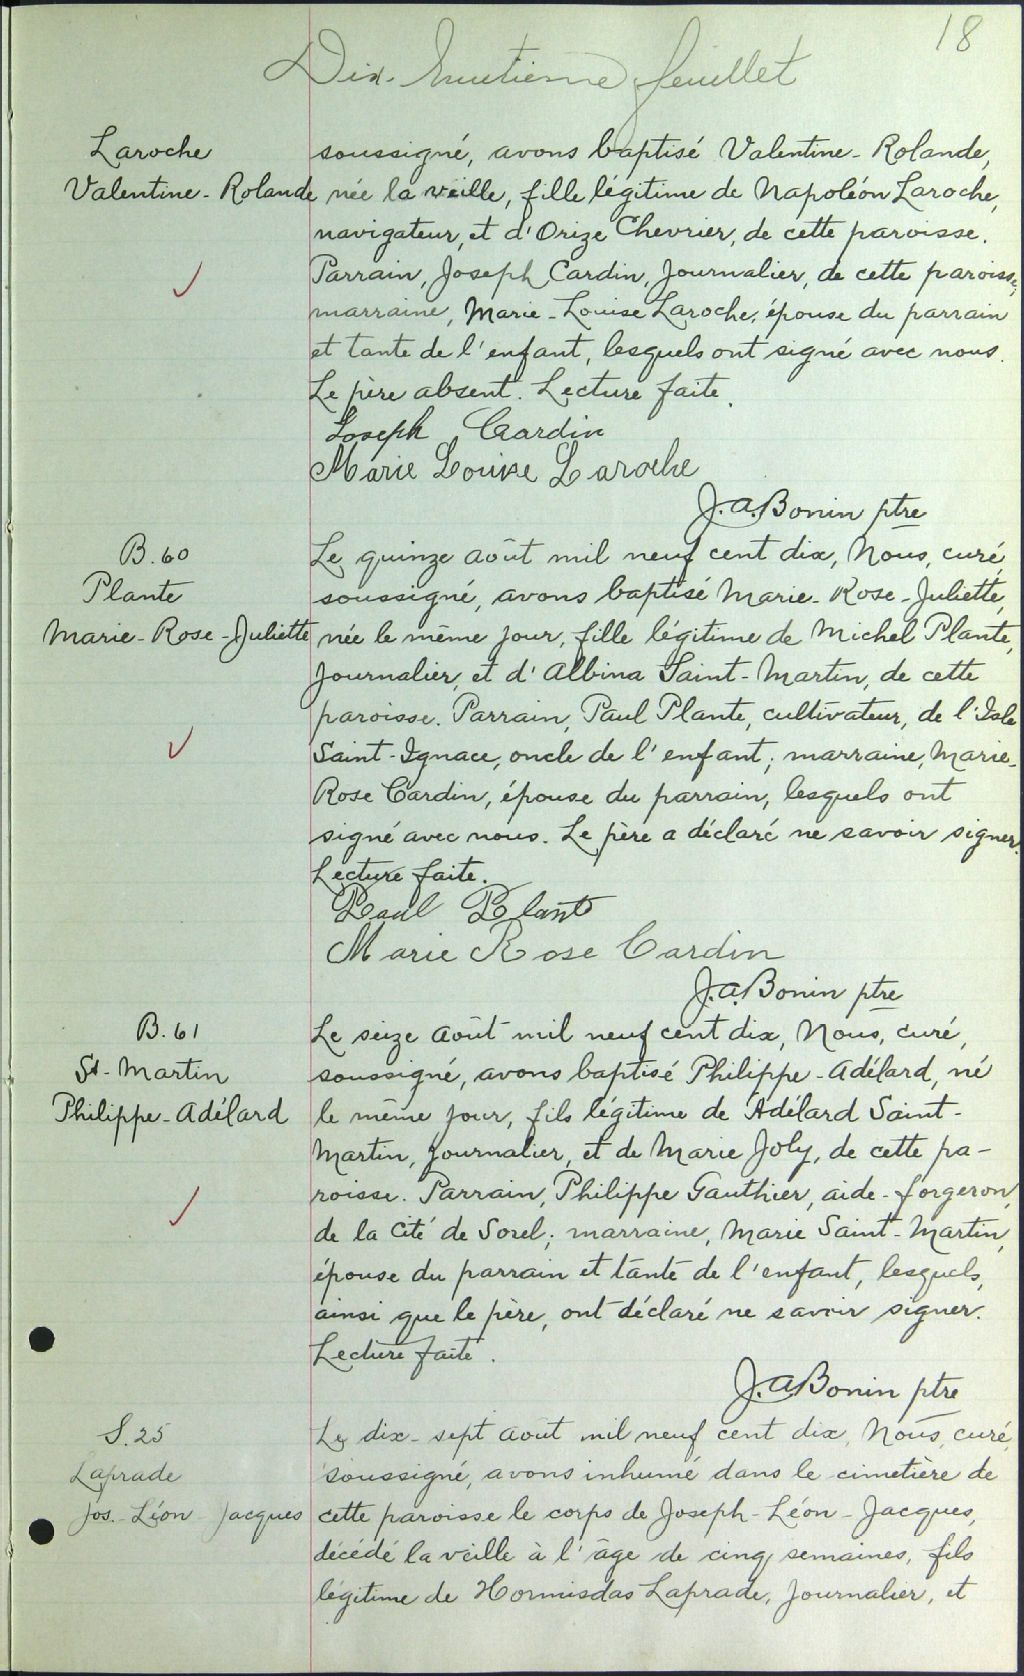 18
Dix-huitième feuillet
Laroche
Valentine-Rolande
soussigné, avons baptisé Valentine-Rolande,
née la veille, fille légitime de Napoléon Laroche,
navigateur, et d'Orize Chevrier, de cette paroisse.
Parrain, Joseph Cardin, journalier, de cette paroisse;
marraine, Marie-Louise Laroche, épouse du parrain
et tante de l'enfant, lesquels ont signé avec nous.
Le père absent. Lecture faite.
Joseph Cardin
Marie Louise Laroche
J.A. Bonin ptre
B.60
Plante
Marie-Rose-Juliette
Le quinze août mil neuf cent dix, Nous, curé,
soussigné, avons baptisé Marie-Rose-Juliette,
née le même jour, fille légitime de Michel Plante,
journalier, et d'Albina Saint-Martin, de cette
paroisse. Parrain, Paul Plante, cultivateur, de l'Isle
Saint-Ignace, oncle de l'enfant; marraine, Marie-
Rose Cardin, épouse du parrain, lesquels ont
signé avec nous. Le père a déclaré ne savoir signer.
Lecture faite.
Paul Plante
Marie Rose Cardin
J.A. Bonin ptre
B.61
St-Martin
Philippe-Adélard
Le seize août mil neuf cent dix, Nous, curé,
soussigné, avons baptisé Philippe-Adélard, né
le même jour, fils légitime de Adélard Saint-
Martin, journalier, et de Marie Joly, de cette pa-
roisse. Parrain, Philippe Gauthier, aide-forgeron,
de la Cité de Sorel; marraine, Marie Saint-Martin,
épouse du parrain et tante de l'enfant, lesquels,
ainsi que le père, ont déclaré ne savoir signer.
Lecture faite.
J.A. Bonin ptre
S.25
Laprade
Jos.-Léon-Jacques
Le dix-sept août mil neuf cent dix, Nous, curé,
soussigné, avons inhumé dans le cimetière de
cette paroisse le corps de Joseph-Léon-Jacques,
décédé la veille à l'âge de cinq semaines, fils
légitime de Hormisdas Laprade, journalier, et